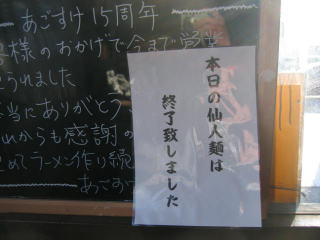 あごすけ15周年
様のおかげで今まで営業
られました
当にありがとう
れからも感謝の
めてラーメン作り続
あごすけ
本日の仙人麺は
終了致しました